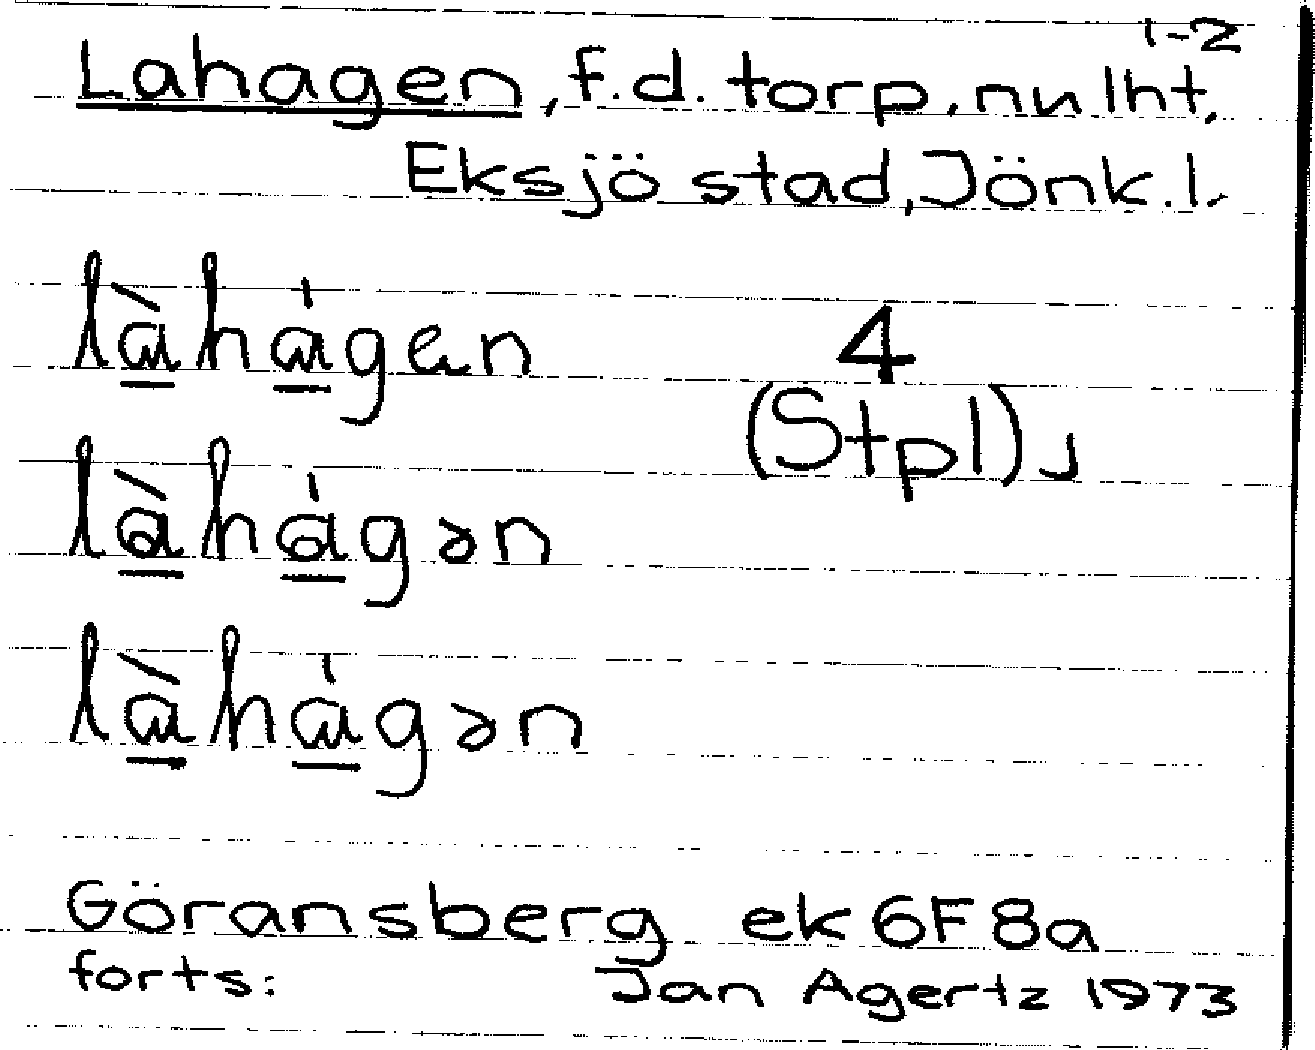 1-2
Lahagen, f.d. torp, nu lht,
Eksjö stad, Jönk.l.
l<u>à</u>h<u>á</u>gen 4
(Stpl) ɹ
l<u>à</u>h<u>á</u>gən
l<u>à</u>h<u>á</u>gən
Göransberg ek 6F 8a
forts: Jan Agertz 1973